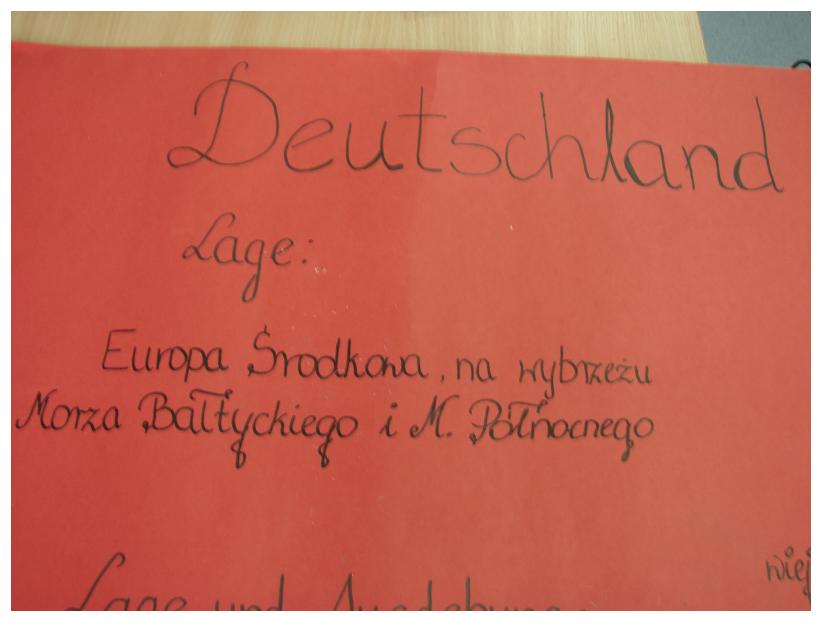 Deutschland
Lage:
Europa Środkowa, na wybrzeżu
Morza Bałtyckiego i M. Północnego
wiej
Lage und Ausdehnung